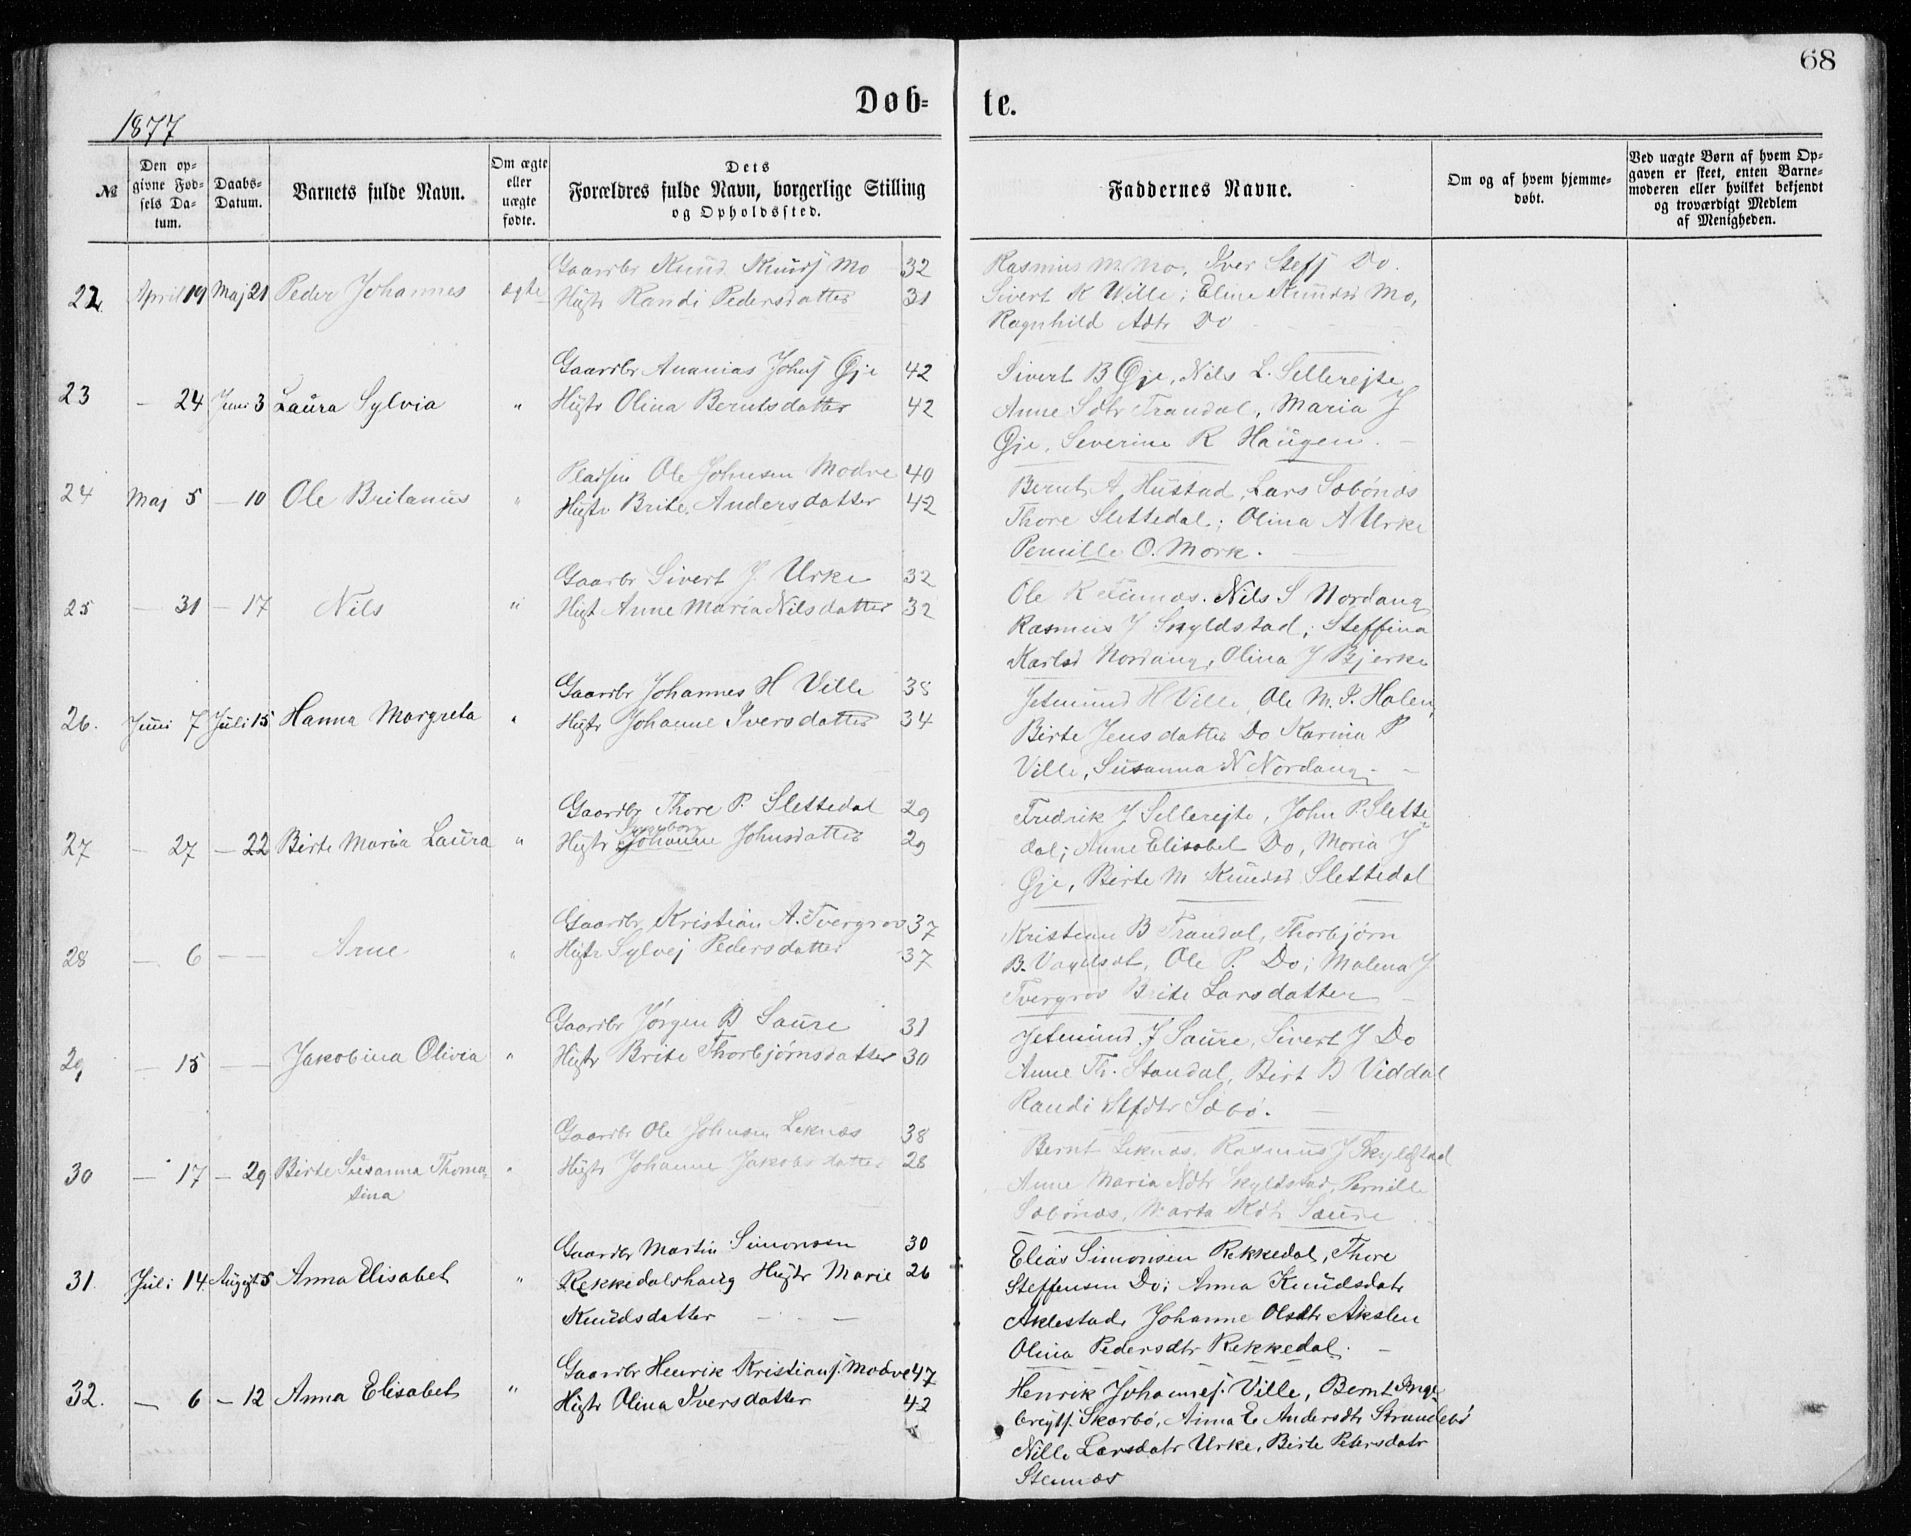 68
Døb- te.
1877
№ Den opgivne Fødsels Datum. Daabs-Datum. Barnets fulde Navn. Om ægte eller uægte fødte. Dets Forældres fulde Navn, borgerlige Stilling og Opholdssted. Faddernes Navne. Om og af hvem hjemmedøbt. Ved uægte Børn af hvem Opgaven er skeet, enten Barnemoderen eller hvilket bekjendt og troværdigt Medlem af Menigheden.
Gaardbr Knud Knudsj Mo 32
22. April 19 Maj 21 Peder Johannes ægte Hustr Randi Pedersdatter 31
Rasmus M. Mo, Iver Stefj Do.
Sivert K Wille; Eline Knudsd Mo,
Ragnhild Adtr Do
Gaardbr Ananias Johnsj Øje 42
23 — 24 Juni 3 Laura Sylvia " Hustr Olina Berntsdatter 42
Sivert B Øje, Nils L. Sellerejte
Anne Sdtr Trandal, Maria J
Øje, Severine R Haugen. —
Pladsm Ole Johnsen Modve 40
24 Maj 5 — 10 Ole Britanus " Hustr Brite Andersdatter 42
Bernt A Hustad, Lars Sæbønæs
Thore Slettedal; Olina A Urke
Pernille O. Mork. —
Gaarbr Sivert J. Urke 32
25 — 31 — 17 Nils " Hust Anne Maria Nilsdatter 32
Ole R Nils S Nordang
Rasmus J Skyldstad; Steffina
Karlsd Nordang, Olina J Bjerke
Gaardbr Johannes H Ville 35
26. Juni 7 Juli 15 Hanna Margreta " Hustr Johanne Iversdatter 34
Jetmund H Ville, Ole M. P. Holen,
Birte Jensdatter Do Karina P
Ville, Susanna N Nordang —
Gaardbr Thore P. Slettedal 29
27 — 27 — 22 Birte Maria Laura " Hustr Johanne Johnsdatter 29
Ingeborg
Fredrik J Sellerejte, John P. Slette
dal; Anne Elisabet Do, Maria J
Øje, Birte M Knudsd Slettedal
Gaardbr Kristian A. Tvergrov 37
28 — 6 — — Arne " Hustr Sylvej Pedersdatter 37
Kristian B Trandal, Thorbjørn
B. Ole P. Do; Malena J
Tvergrov Brite Larsdatter —
Gaardbr Jørgen B Saure 31
29 — 15 — — Jakobina Olivia " Hustr Brite Thorbjørnsdatter 30
Jetmund J Saure, Sivert J Do
Anne Th. Standal, Birt B Viddal
Randi Stfdtr Sæbø. —
Gaardbr Ole Johnsen Leknæs 38
30 — 17 — 29 Birte Susanna Thoma- " Hustr Johanne Jakobsdatter 28
sina
Bernt Leknæs, Rasmus J Skyldstad
Anne Maria Ndtr Skyldstad, Pernille
Sæbønæs, Marta Kdtr Saure
Gaardbr Martin Simonsen 30
31. Juli 14 August 5 Anna Elisabet " Rekkedalshaug Hustr Marie 26
Knudsdatter — . —
Elias Simonsen Rekkedal, Thore
Steffensen Do; Anna Knudsdatr
Aklestad, Johanne Olsdtr Akslen
Olina Pedersdtr Rekkedal. —
Gaardbr Henrik Kristiansj. Modve 47
32. — 6 — 12 Anna Elisabet " Hustr Olina Iversdatter 42
Henrik Johannesj. Ville, Bernt Inge-
brigtsj. Skarbø, Anna E. Andersdtr Strandebø
Nille Larsdatr Urke, Birte Petersdatr
Stennæs